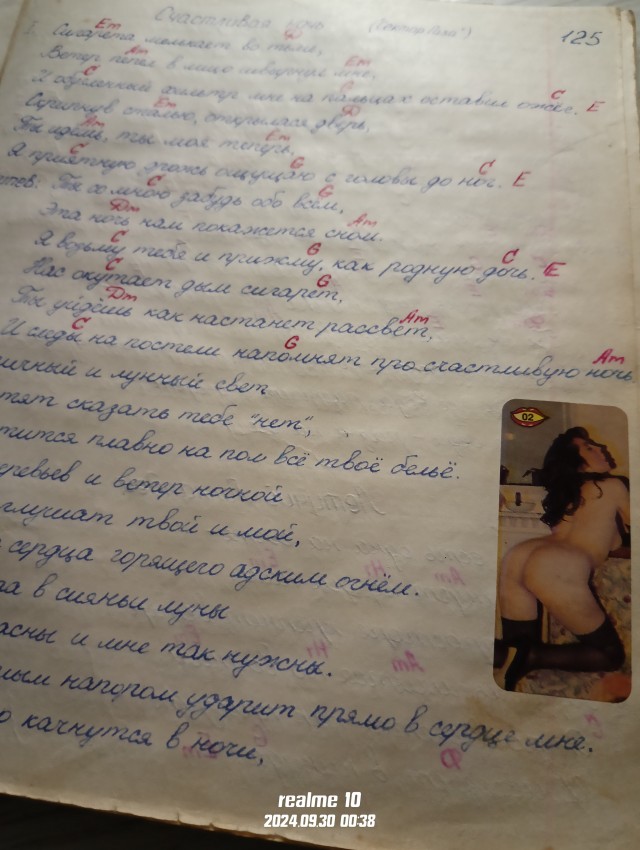 Счастливая ночь ("Сектор Газа")
125
I. Em D
Сигарета мелькает во тьме,
Am Em
Ветер пепел в лицо швырнул мне,
C G C E
И обугленный фильтр мне на пальцах оставил ожёг.
Em D
Скрипнув сталью, открылася дверь,
Am Em
Ты идёшь, ты моя теперь.
C G C E
Я приятную дрожь ощущаю с головы до ног.
C G
Ты со мною забудь обо всём,
Dm Am
Эта ночь нам покажется сном.
C G C E
Я возьму тебя и прижму, как родную дочь.
C G
Нас окутает дым сигарет,
Dm Am
Ты уйдёшь как настанет рассвет,
C G Am
И следы на постели напомнят про счастливую ночь
и лунный свет
сказать тебе "нет",
плавно на пол всё твоё бельё.
и ветер ночной
твой и мой,
сердца горящего адским огнём.
в сияньи луны
и мне так нужны.
напором ударит прямо в сердце мне.
качнутся в ночи,
02
realme 10
2024.09.30 00:38